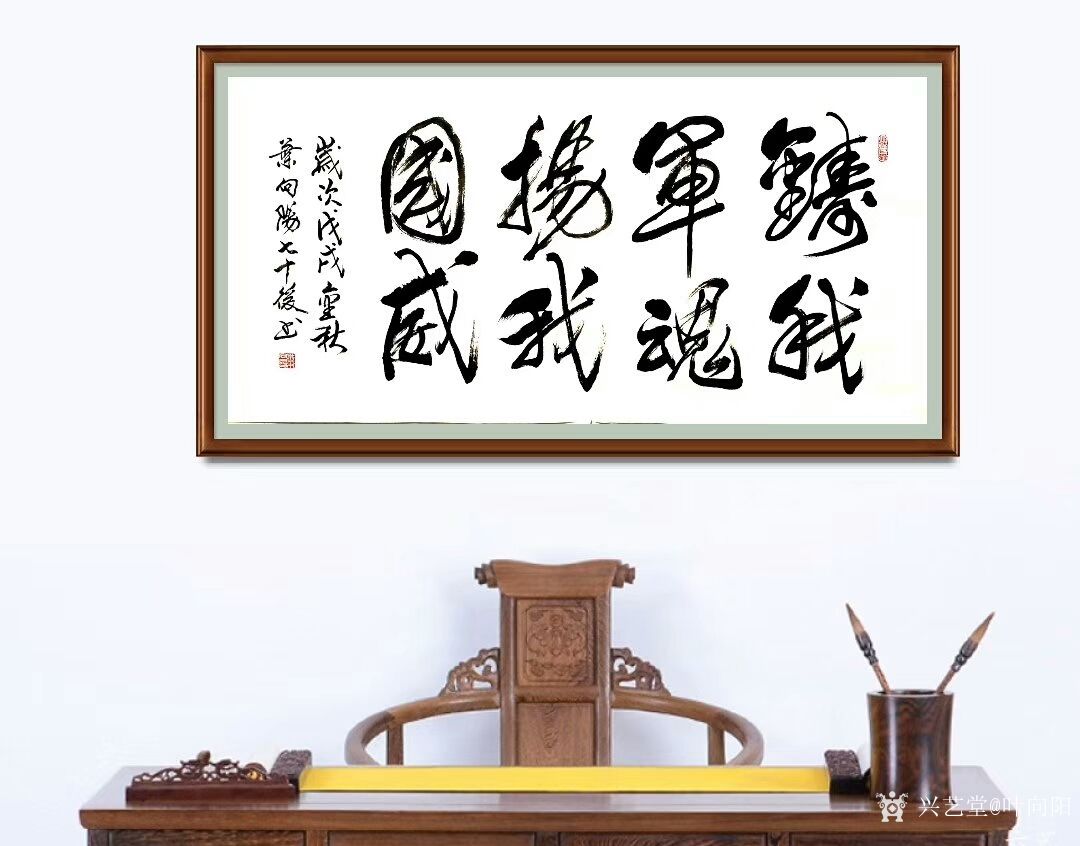 鑄我
軍魂
揚我
國威
歲次戊戌金秋
葉向陽七十後书
兴艺堂@叶向阳